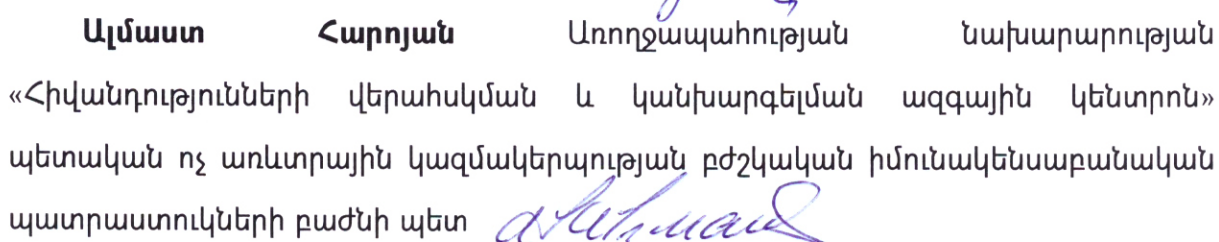 Ալմաստ Հարոյան Առողջապահության նախարարության
«Հիվանդությունների վերահսկման և կանխարգելման ազգային կենտրոն»
պետական ոչ առևտրային կազմակերպության բժշկական իմունակենսաբանական
պատրաստուկների բաժնի պետ